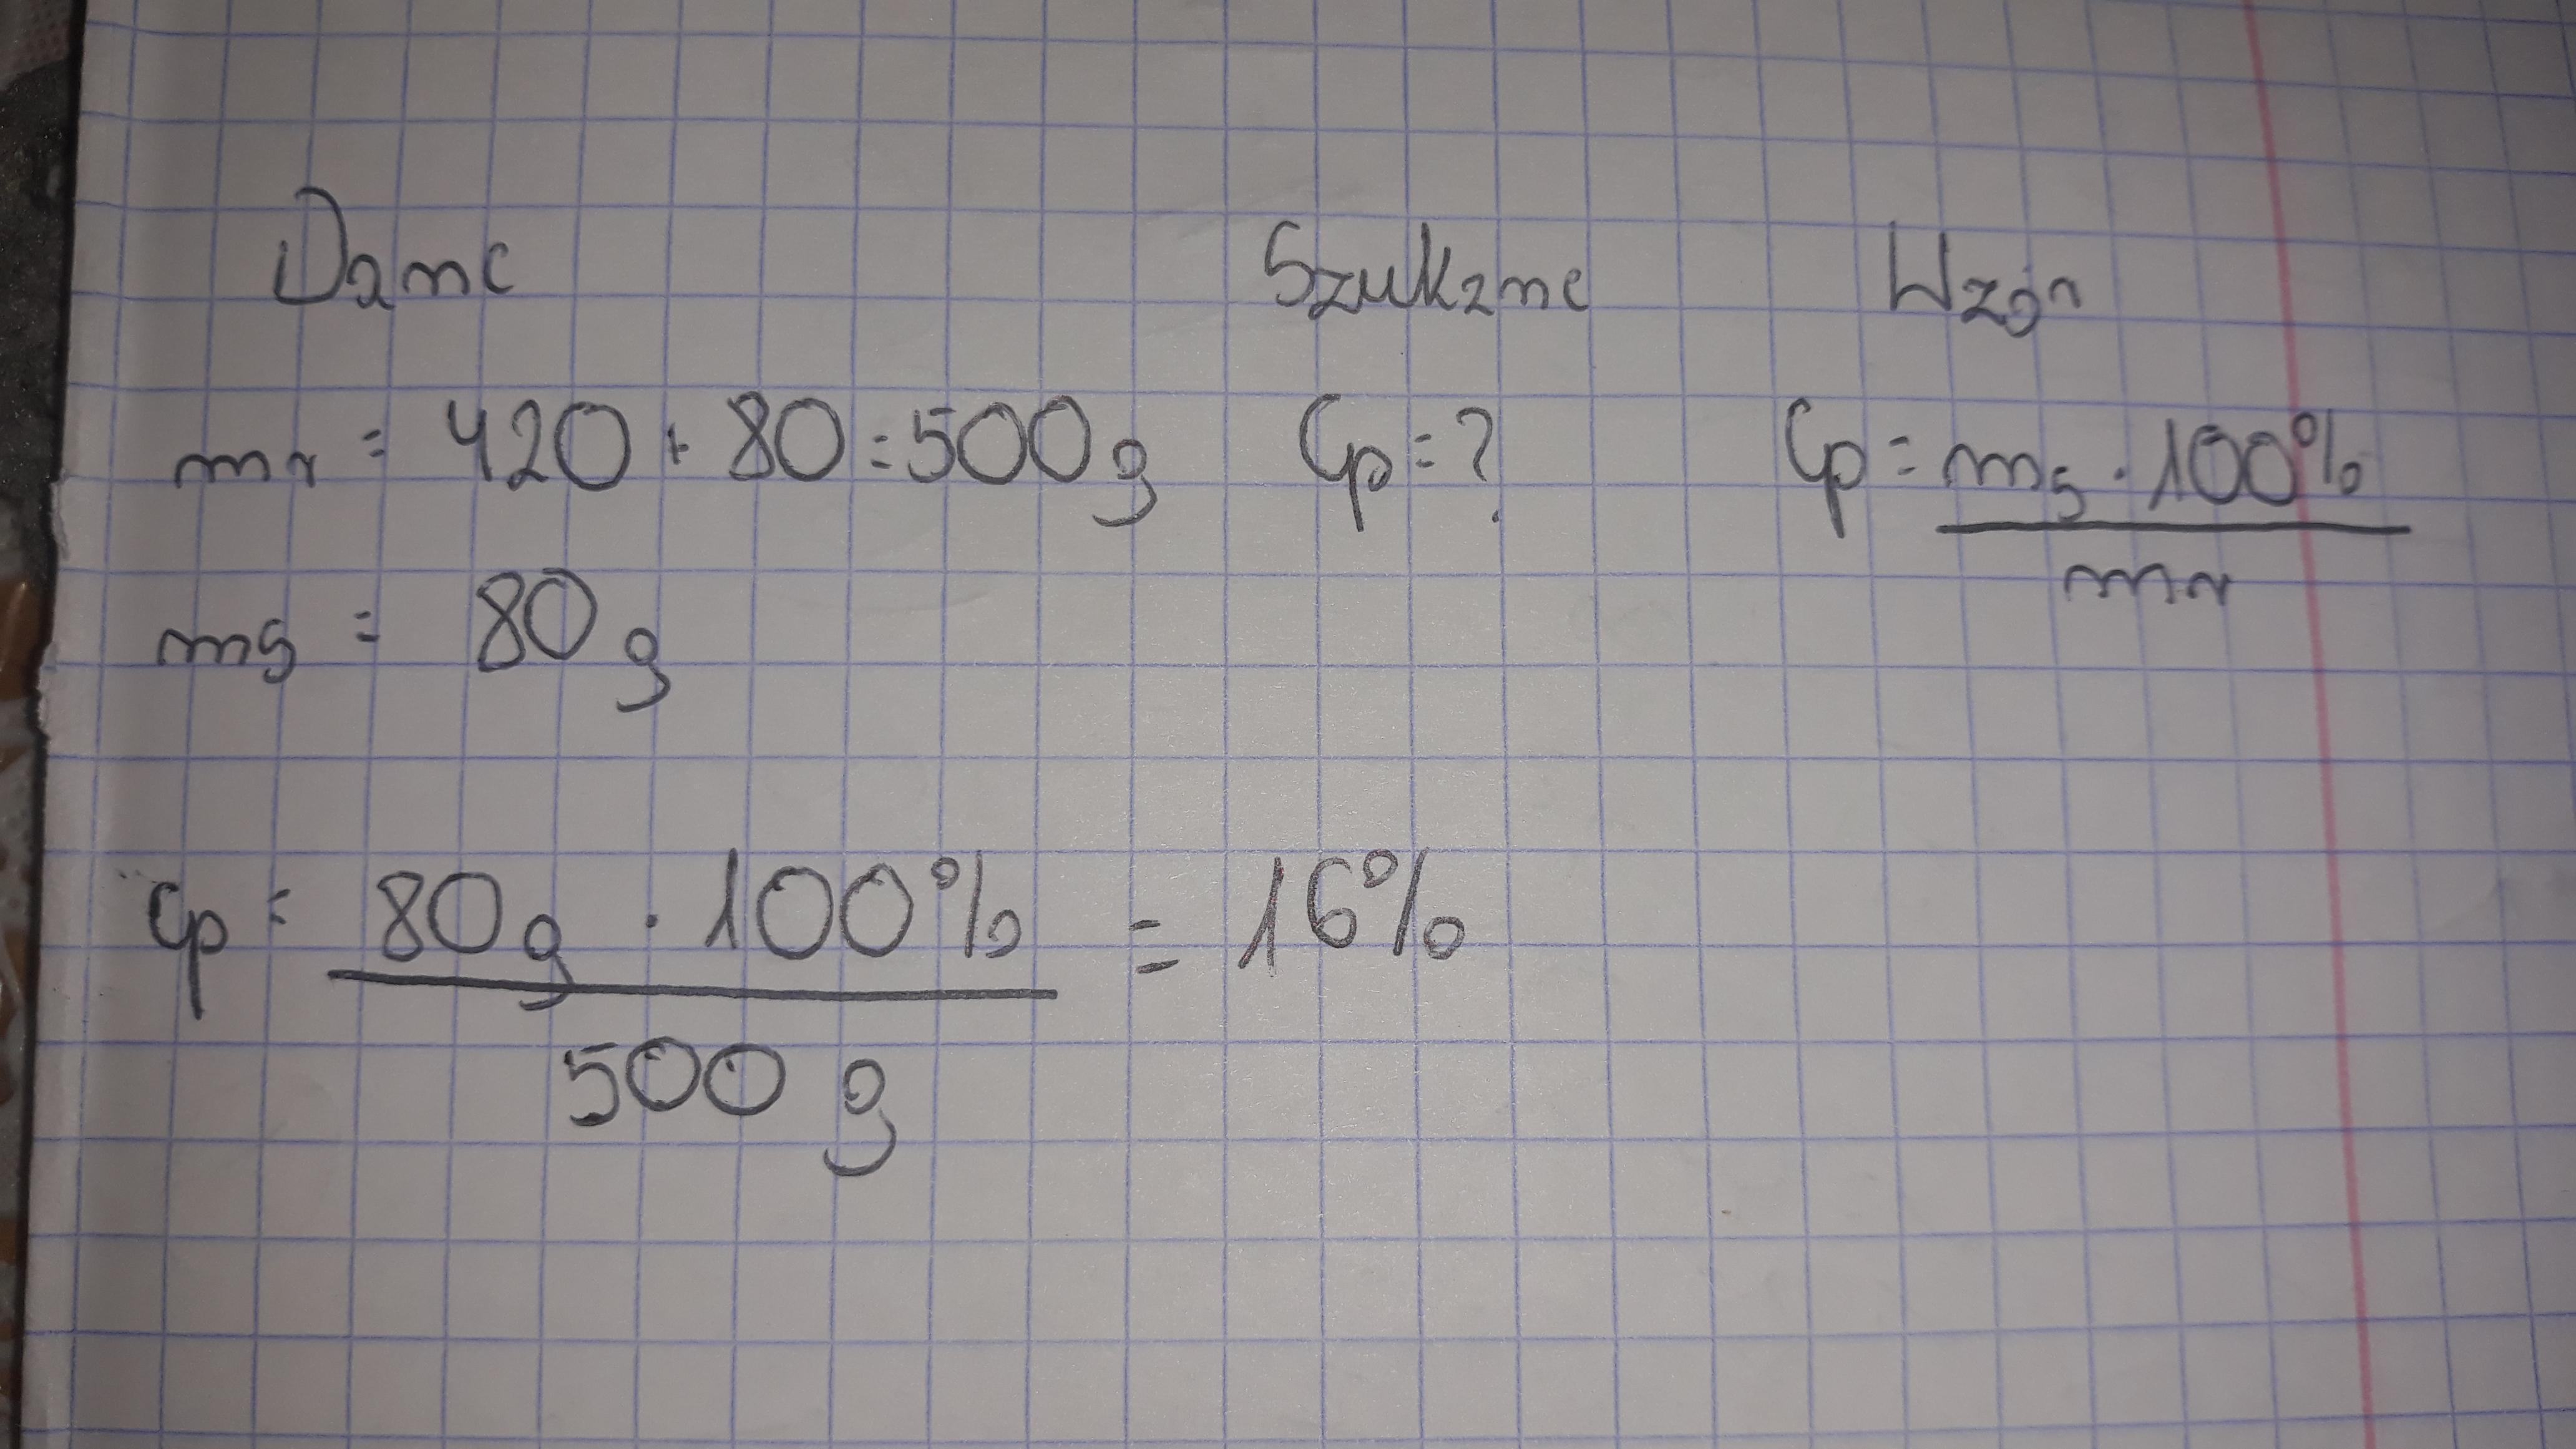 Dane Szukane Wzór
mr = 420 + 80 = 500g Cp = ? Cp = ms · 100%
mr
ms = 80g
Cp = 80g · 100% = 16%
500 g